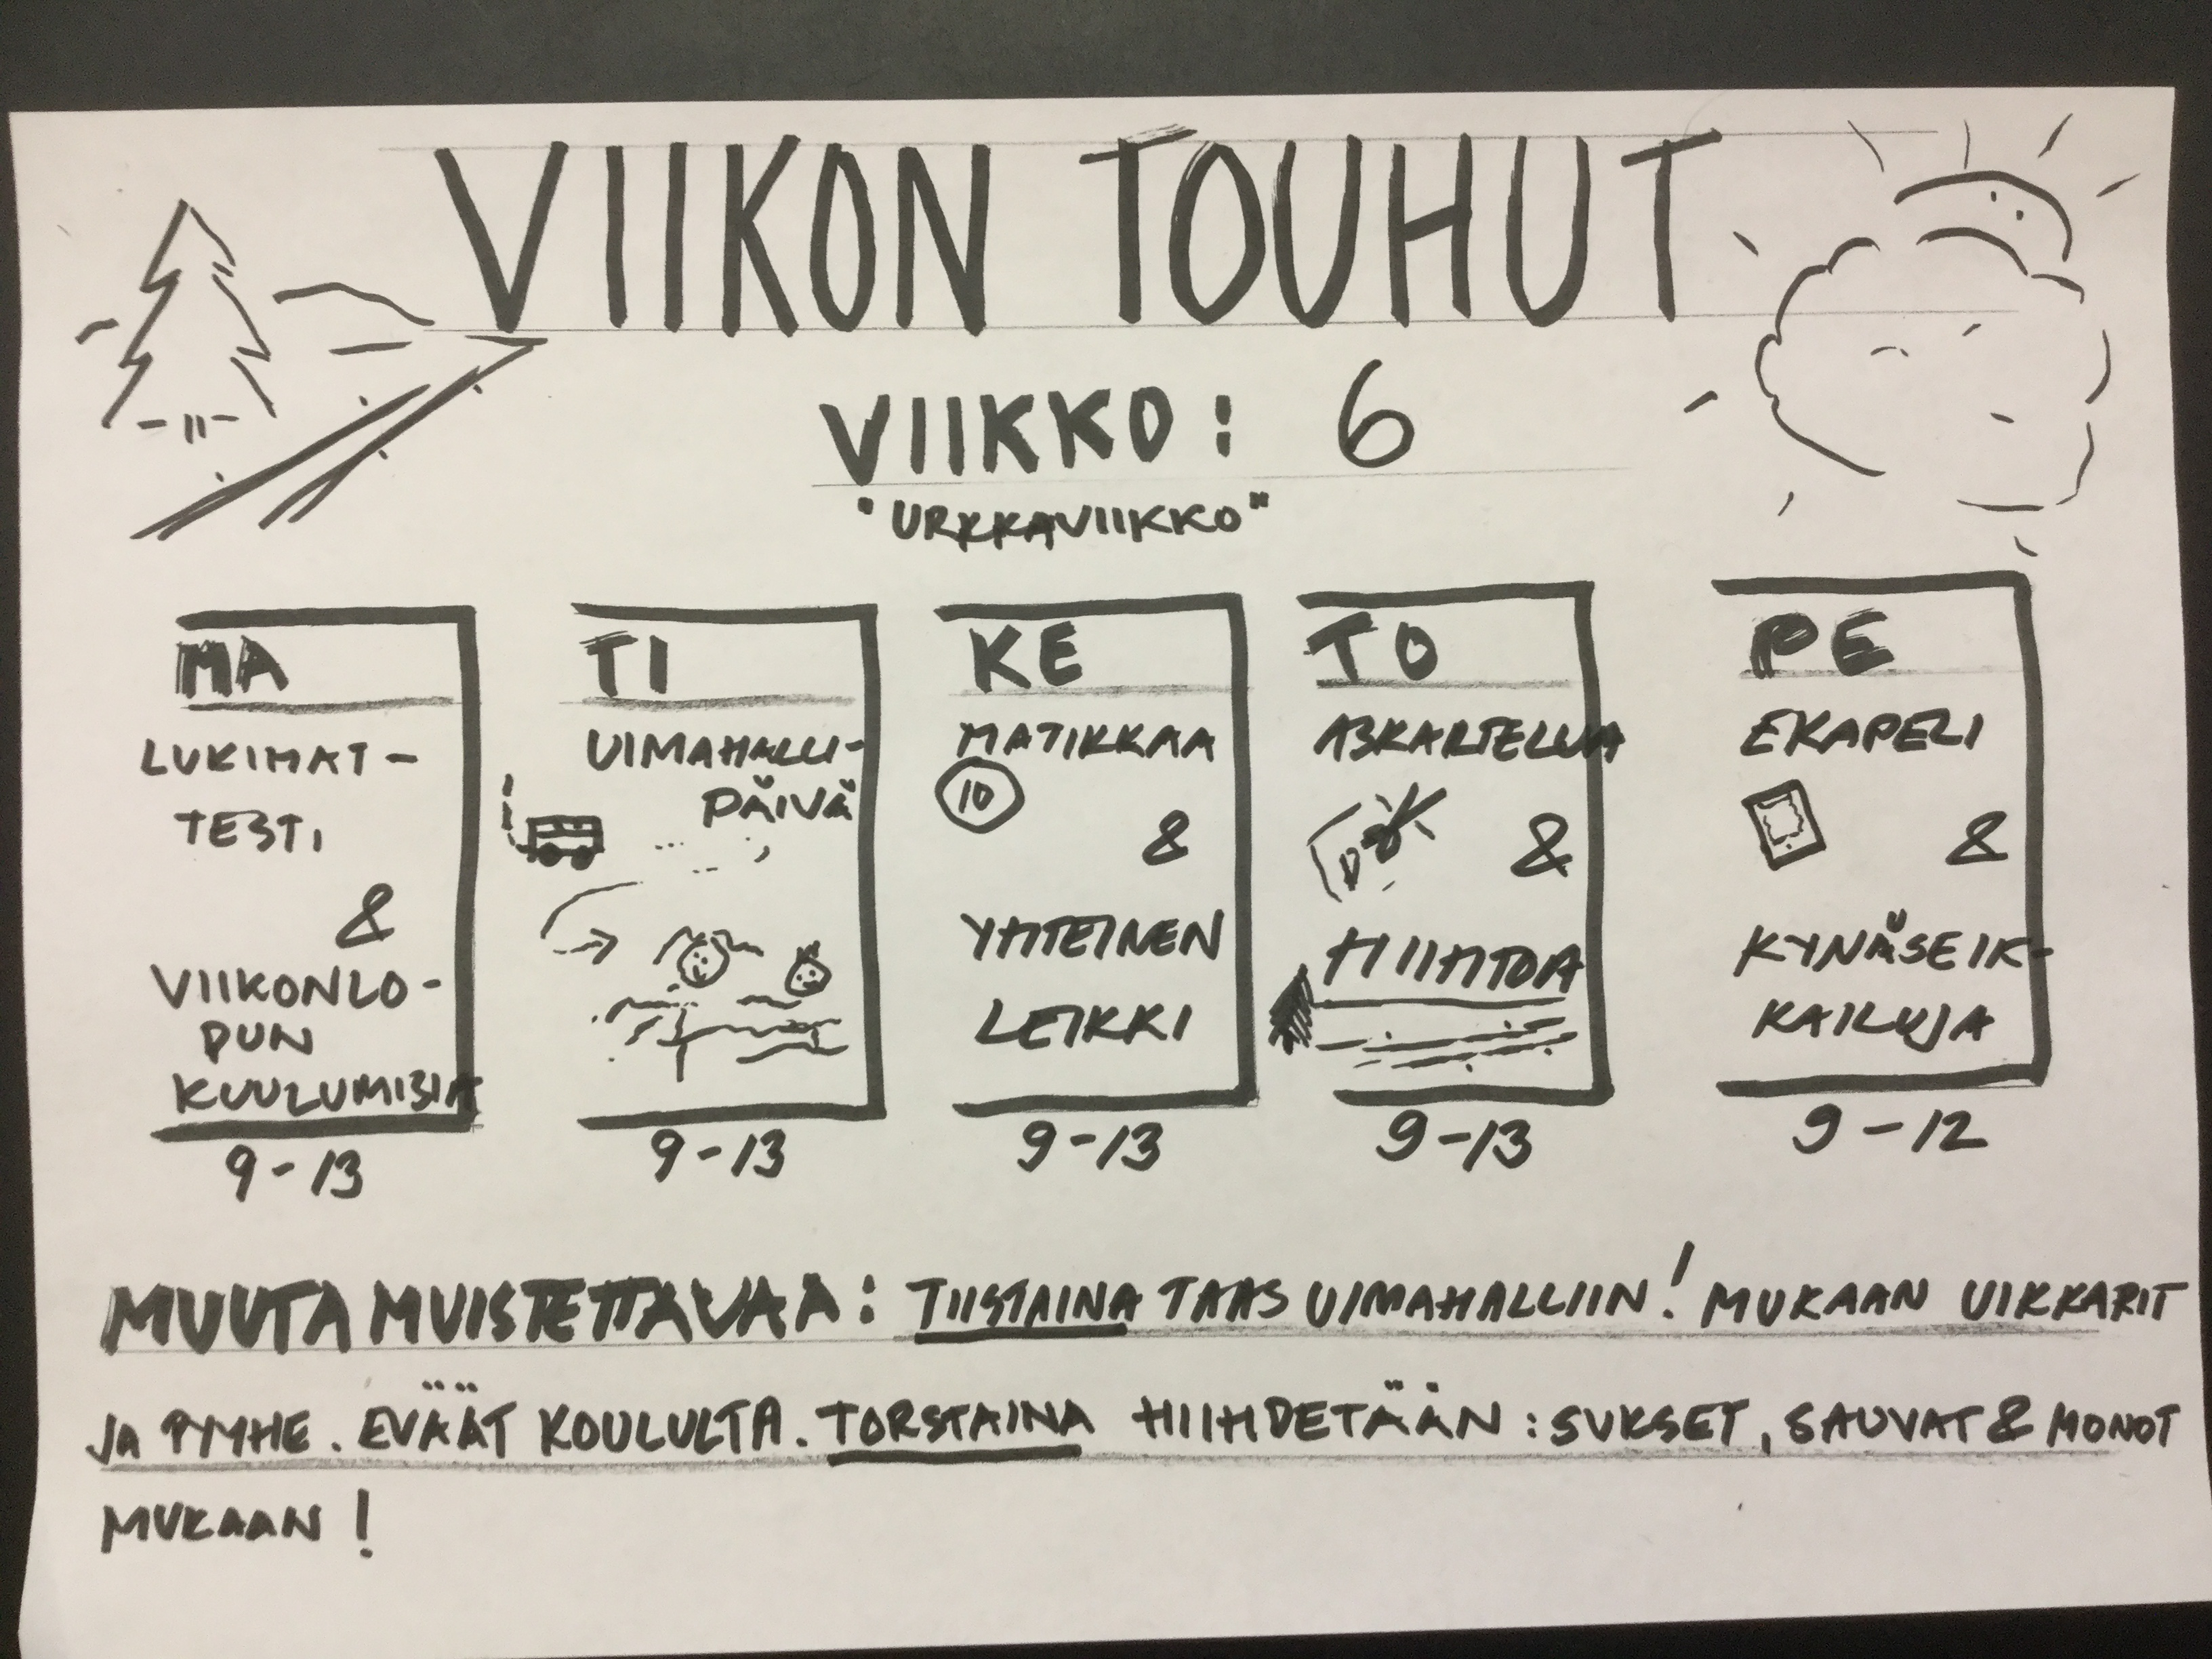 VIIKON TOUHUT
VIIKKO: 6
"URKKAVIIKKO"
MA
LUKIMAT-
TESTI
&
VIIKONLO-
PUN
KUULUMISIA
9-13
TI
UIMAHALLI-
PÄIVÄ
9-13
KE
MATIKKAA
10
&
YHTEINEN
LEIKKI
9-13
TO
ASKARTELUA
&
HIIHTOA
9-13
PE
EKAPELI
&
KYNÄSEIK-
KAILUJA
9-12
MUUTA MUISTETTAVAA: TIISTAINA TAAS UIMAHALLIIN! MUKAAN UIKKARIT
JA PYYHE. EVÄÄT KOULULTA. TORSTAINA HIIHDETÄÄN: SUKSET, SAUVAT & MONOT
MUKAAN!